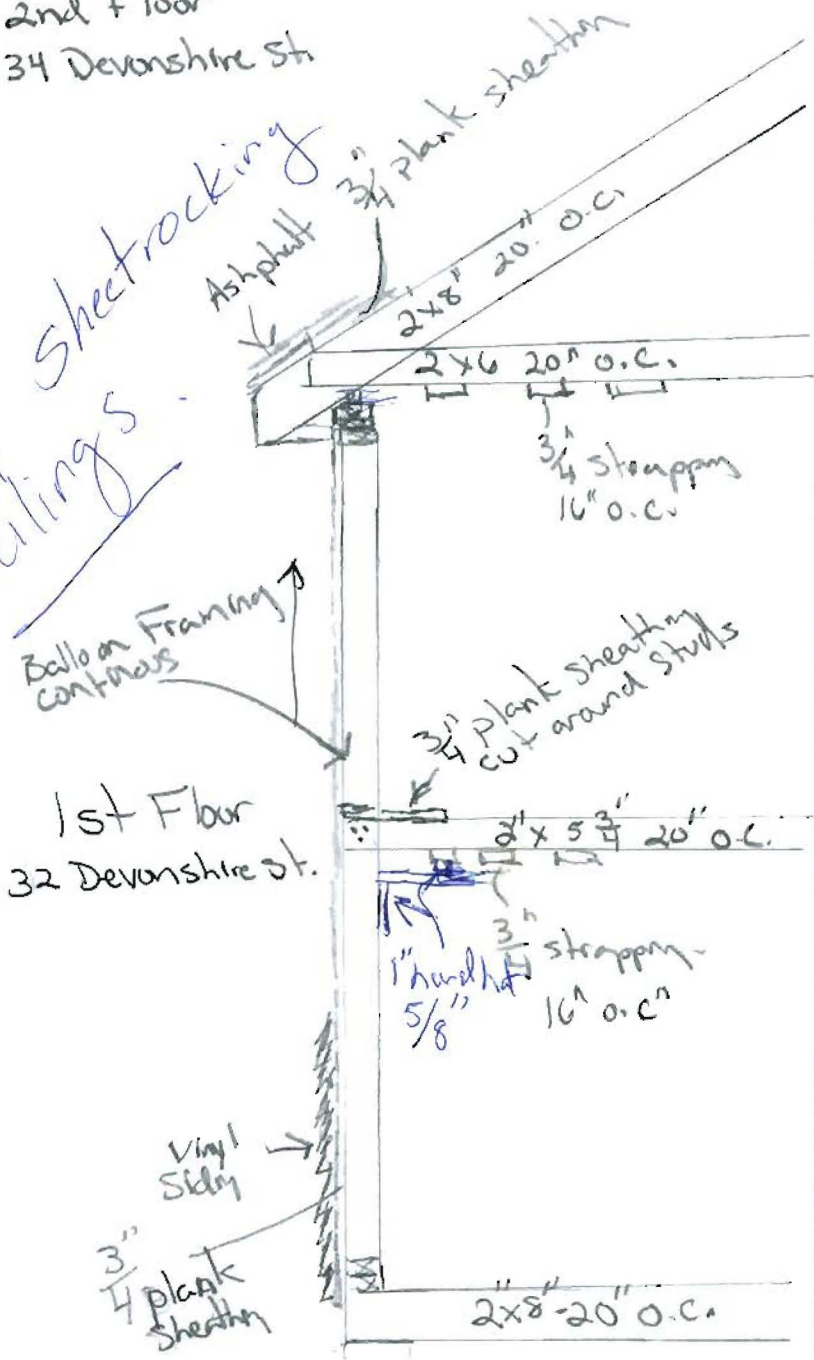 2nd Floor
34 Devonshire St.
sheetrocking
ilings.
Ashphalt
3/4" plank sheathin
2x8" 20" O.C.
2x6 20" O.C.
3/4" strapping
16" O.C.
Balloon Framing
continous
3/4" plank sheathing
cut around studs
1st Floor
32 Devonshire St.
2" x 5 3/4" 20" O.C.
3/4" strapping
16" O.C"
1" hour
5/8"
Vinyl
Siding
3/4" plank
Sheathin
2x8"-20" O.C.